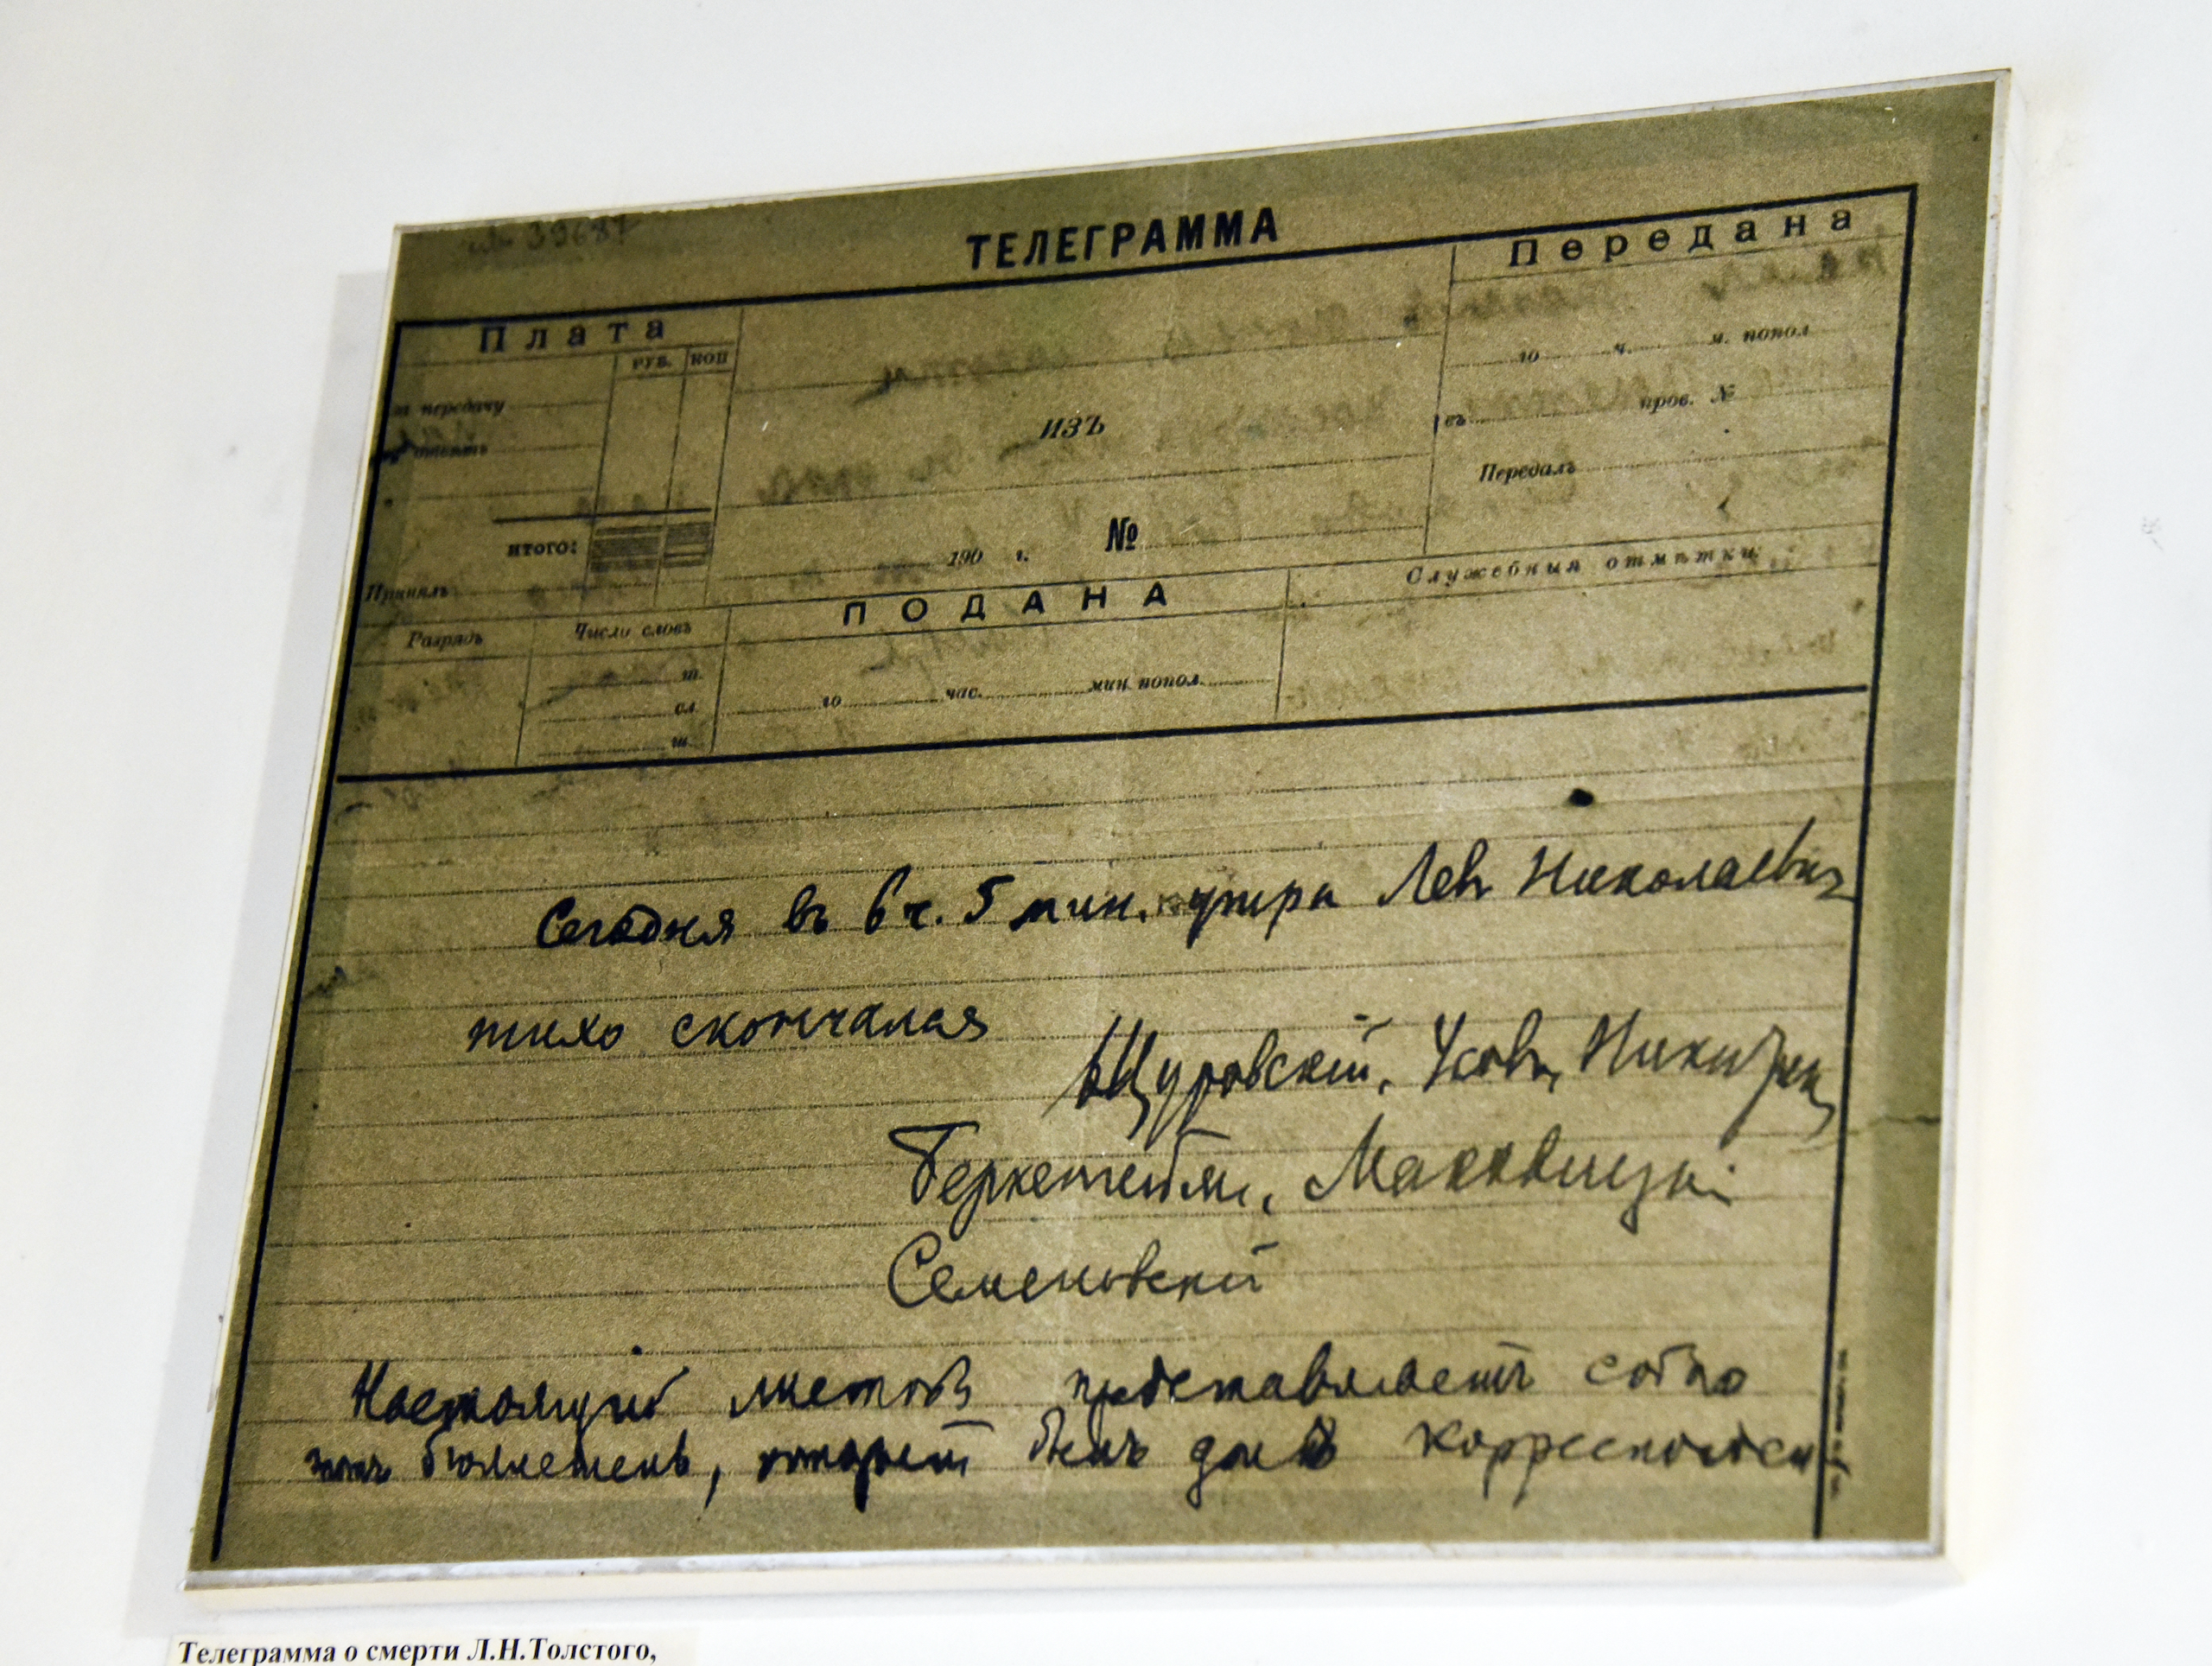 № 39687
ТЕЛЕГРАММА
Плата
РУБ. КОП
за передачу
отвѣтъ
"
ИТОГО:
Принялъ
изъ
190 г. №
Передана
го ч. м. попол
въ пров. №
Передалъ
Разрядъ
Число словъ
т.
сл.
ш.
ПОДАНА
го час. мин. попол.
Служебныя отмѣтки
Сегодня въ 6 ч. 5 мин. утра Левъ Николаевич
тихо скончался
Щуровскій, Усовъ, Никитин,
Беркенгеймъ, Маковицкі
Семеновскій
Настоящій листокъ представляетъ собою
тотъ бюллетень, который былъ данъ корреспонден
Телеграмма о смерти Л.Н.Толстого,